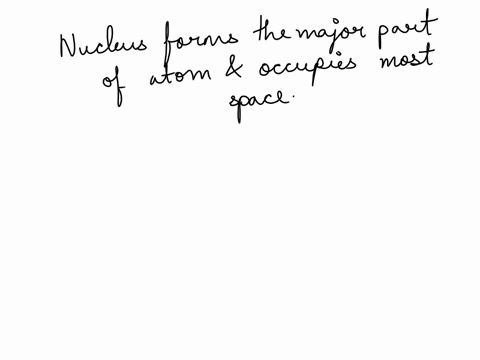 Nucleus forms the major part
of atom & occupies most
space.